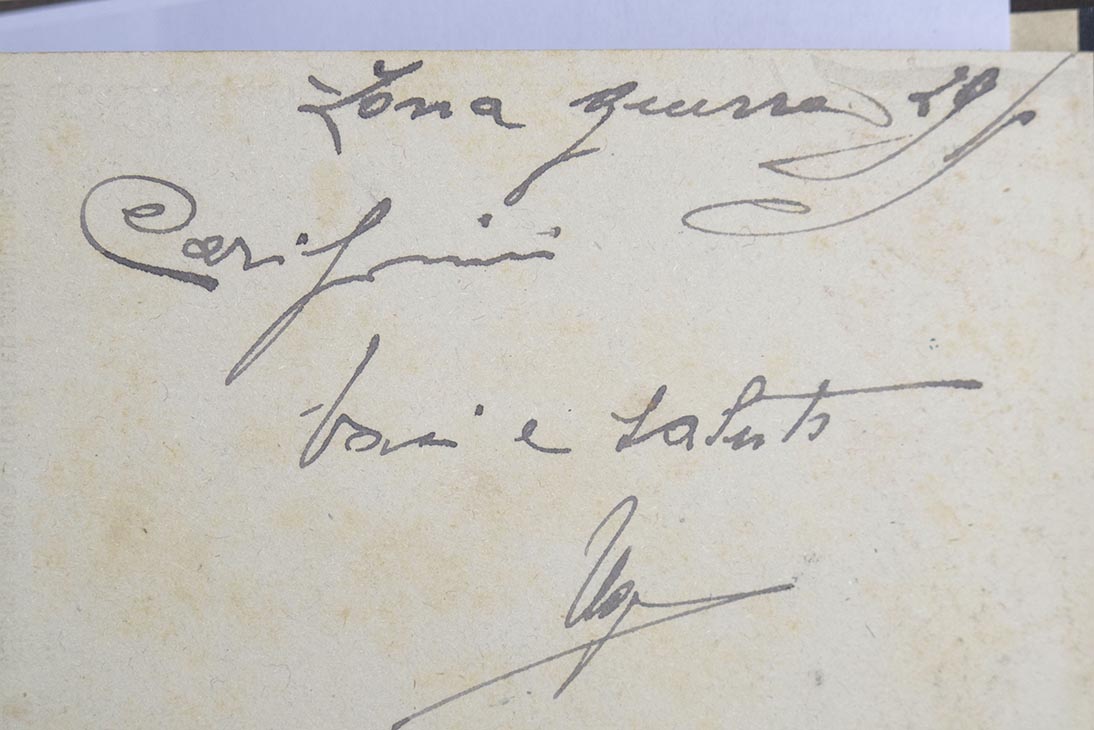 Zona guerra
Carissimi
baci e saluti
Ugo